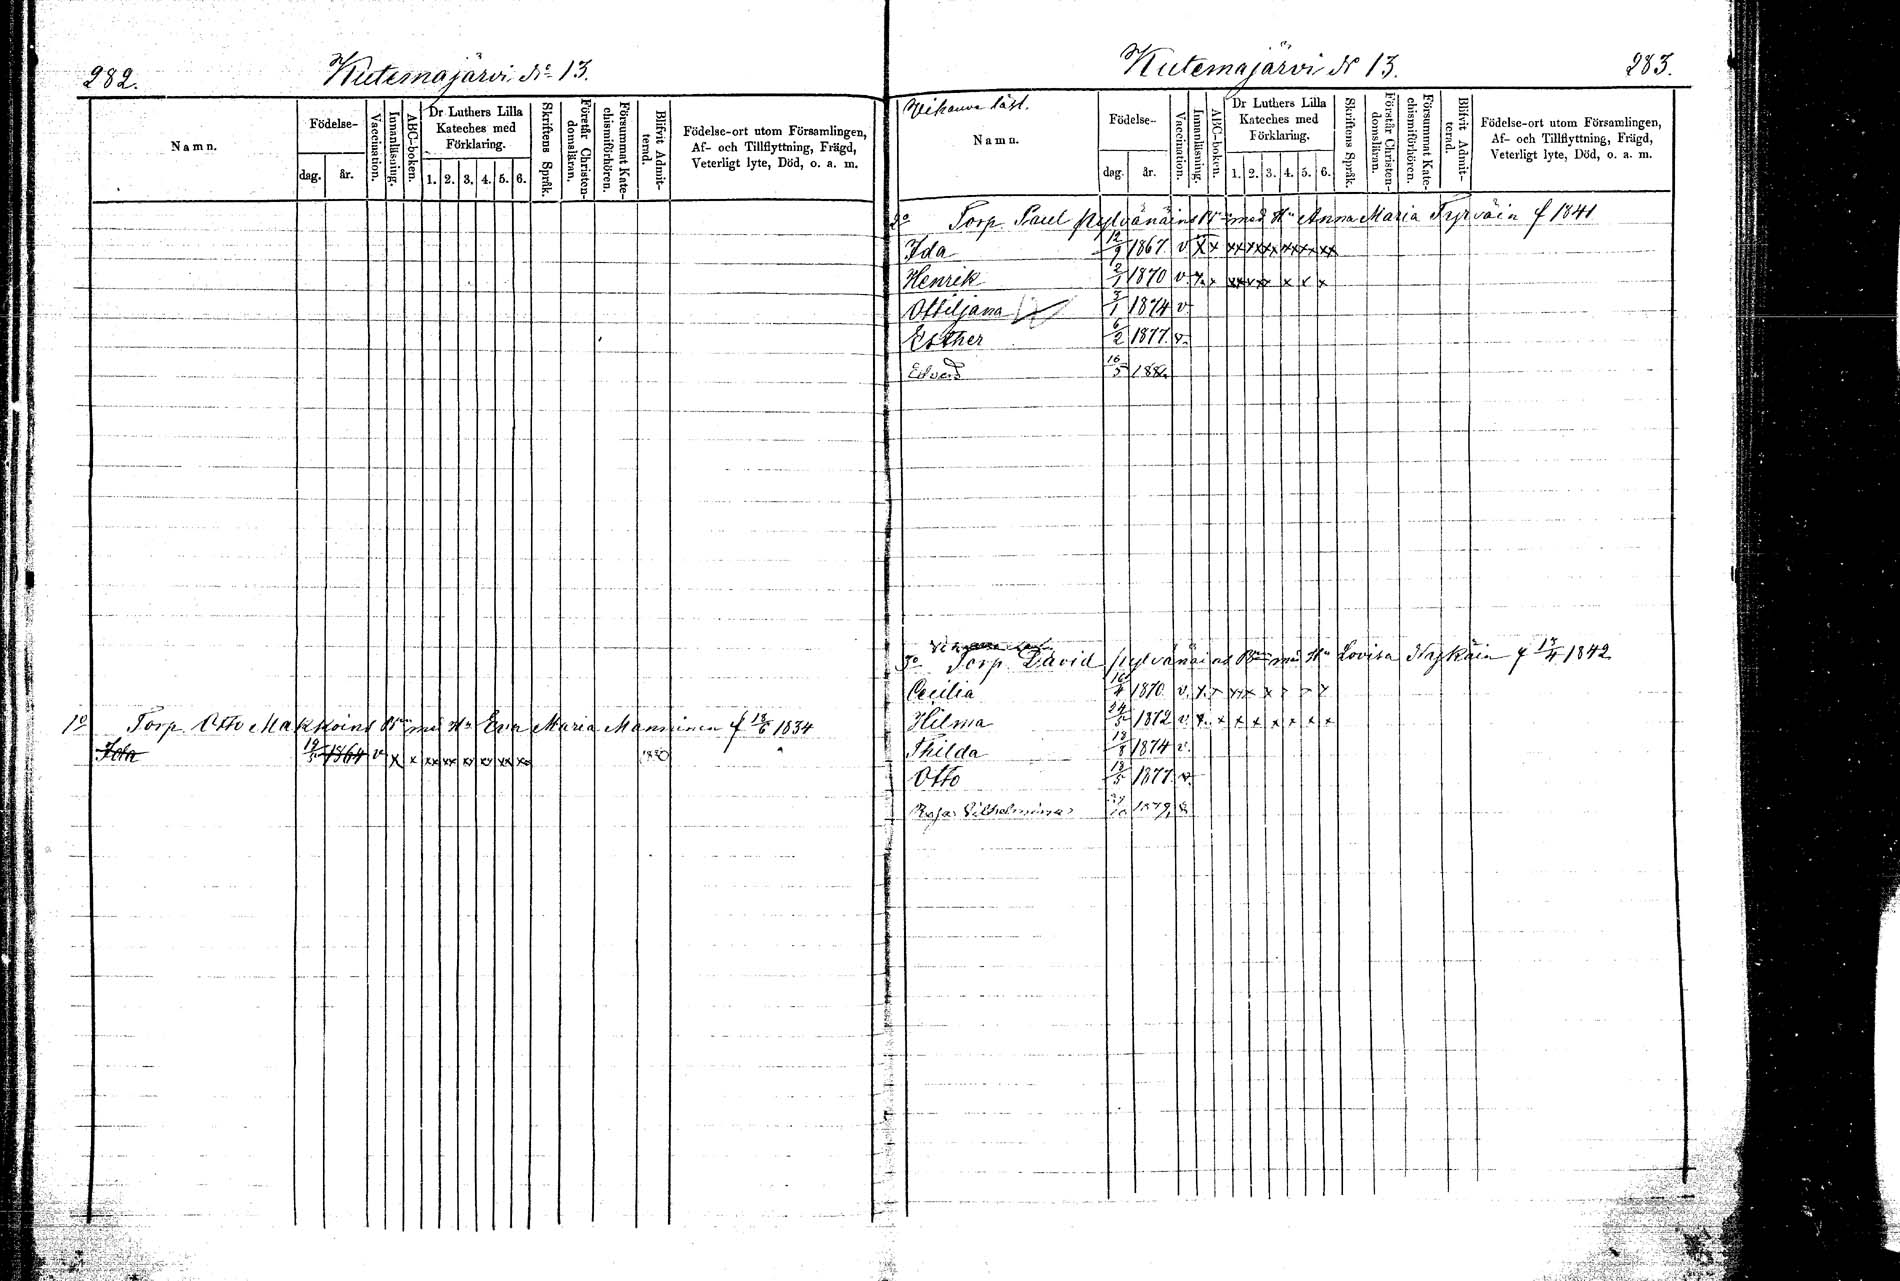 282.
Kutemajärvi No 13.
Namn.
Födelse-
dag.
år.
Vaccination.
Innanläsning.
ABC-boken.
Dr Luthers Lilla Kateches med Förklaring.
1. 2. 3. 4. 5. 6.
Skriftens Språk.
Förstår Christendomsläran.
Försummat Katechismiförhören.
Blifvit Admitternd.
Födelse-ort utom Församlingen,
Af- och Tillflyttning, Frägd,
Veterligt lyte, Död, o. a. m.
1o Torp. Otto Makkoins Bn med Hu Eva Maria Manninen f 18/6 1834
Ida 1864 v x x xx xx xx xx xx xx 1880
Kutemajärvi N 13.
283.
Namn.
Födelse-
dag.
år.
Vaccination.
Innanläsning.
ABC-boken.
Dr Luthers Lilla Kateches med Förklaring.
1. 2. 3. 4. 5. 6.
Skriftens Språk.
Förstår Christen-domsläran.
Försummat Kate-chismiförhören.
Blifvit Admit-ternd.
Födelse-ort utom Församlingen,
Af- och Tillflyttning, Frägd,
Veterligt lyte, Död, o. a. m.
2o Torp. Paul Pylvänäins Bn med Hu Anna Maria Tyrväin f 1841
Ida 12/9 1867. v x x xx xx xx xx xx xx
Henrik 2/1 1870 v. x x xx xx x x x
Ottiljana 3/1 1874 v
Esther 6/2 1877. v.
Edvard 16/5
3o Torp. David Pylvänäins Bn med Hu Lovisa f 17/4 1842
Cecilia 16/4 1870. v. x. x xx x x x x x
Hilma 24/5 1872 v. x. x x x x x x x
Thilda 18/8 1874 v.
Otto 18/5 1877. v
Vilhelmina 1879. v